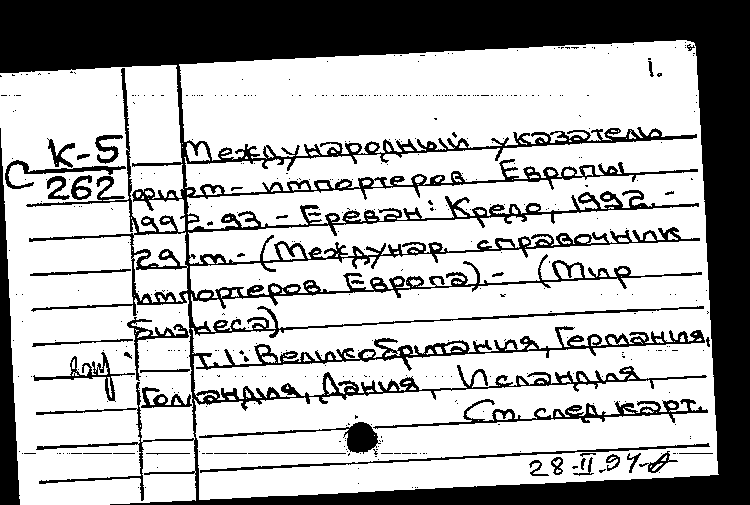 1.
К-5 Международный указатель
С 262 фирм-импортеров Европы,
1992-93. - Ереван: Кредо, 1992. -
29 см. - (Междунар. справочник
импортеров. Европа). - (Мир
бизнеса).
Т.1: Великобритания, Германия,
Голландия, Дания, Исландия,
См. след. карт.
28-II.94